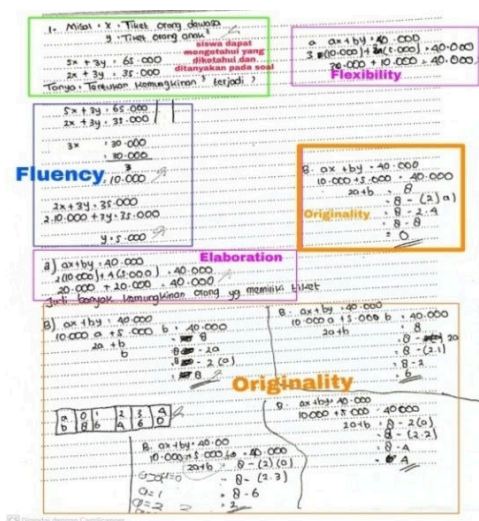 1. Misal : x : Tiket orang dewasa
y : Tiket orang anak²
5x + 3y : 65.000
2x + 3y : 35.000
siswa dapat
mengetahui yang
diketahui dan
ditanyakan pada soal
Tanya : Tentukan kemungkinan² terjadi ?
a ax + by = 40.000
+ 10.000 = 40.000
Flexibility
5x + 3y = 65.000
2x + 3y : 35.000
3x : 30.000
30.000
3
: 10.000
2x + 3y = 35.000
2.10.000 + 3y = 35.000
y = 5.000
Fluency
B. ax + by = 40.000
10.000 + 5.000 = 40.000
2a + b = 8
= 8 - (2)a)
= 8 - 2.4
= 8 - 8
= 0
Originality
Elaboration
a) ax + by = 40.000
2(10.000) + 4(5.000) = 40.000
20.000 + 20.000 = 40.000
Jadi banyak kemungkinan orang yg memiliki tiket
B) ax + by = 40.000
10.000 a + 5.000 b = 40.000
2a + b = 8
b = 8 - 2a
= 8 - 2 (a)
= 8
B. ax + by = 40.000
10.000 a + 5.000 b = 40.000
2a + b = 8
= 8 - 2a
= 8 - (2.1)
= 8 - 2
6
Originality
a 0 1 2 3 4
b 8 6 4 0
B. ax + by = 40.000
10.000 + 5.000 = 40.000
2a + b = 8 - 2(a)
= 8 - (2.2)
= 8 - 4
= 4
B. ax + by = 40.00
= 40.000
2a + b = 8 - (2)(a)
= 8 - (2.3)
= 8 - 6
= 2
a = 1
a = 2
CS